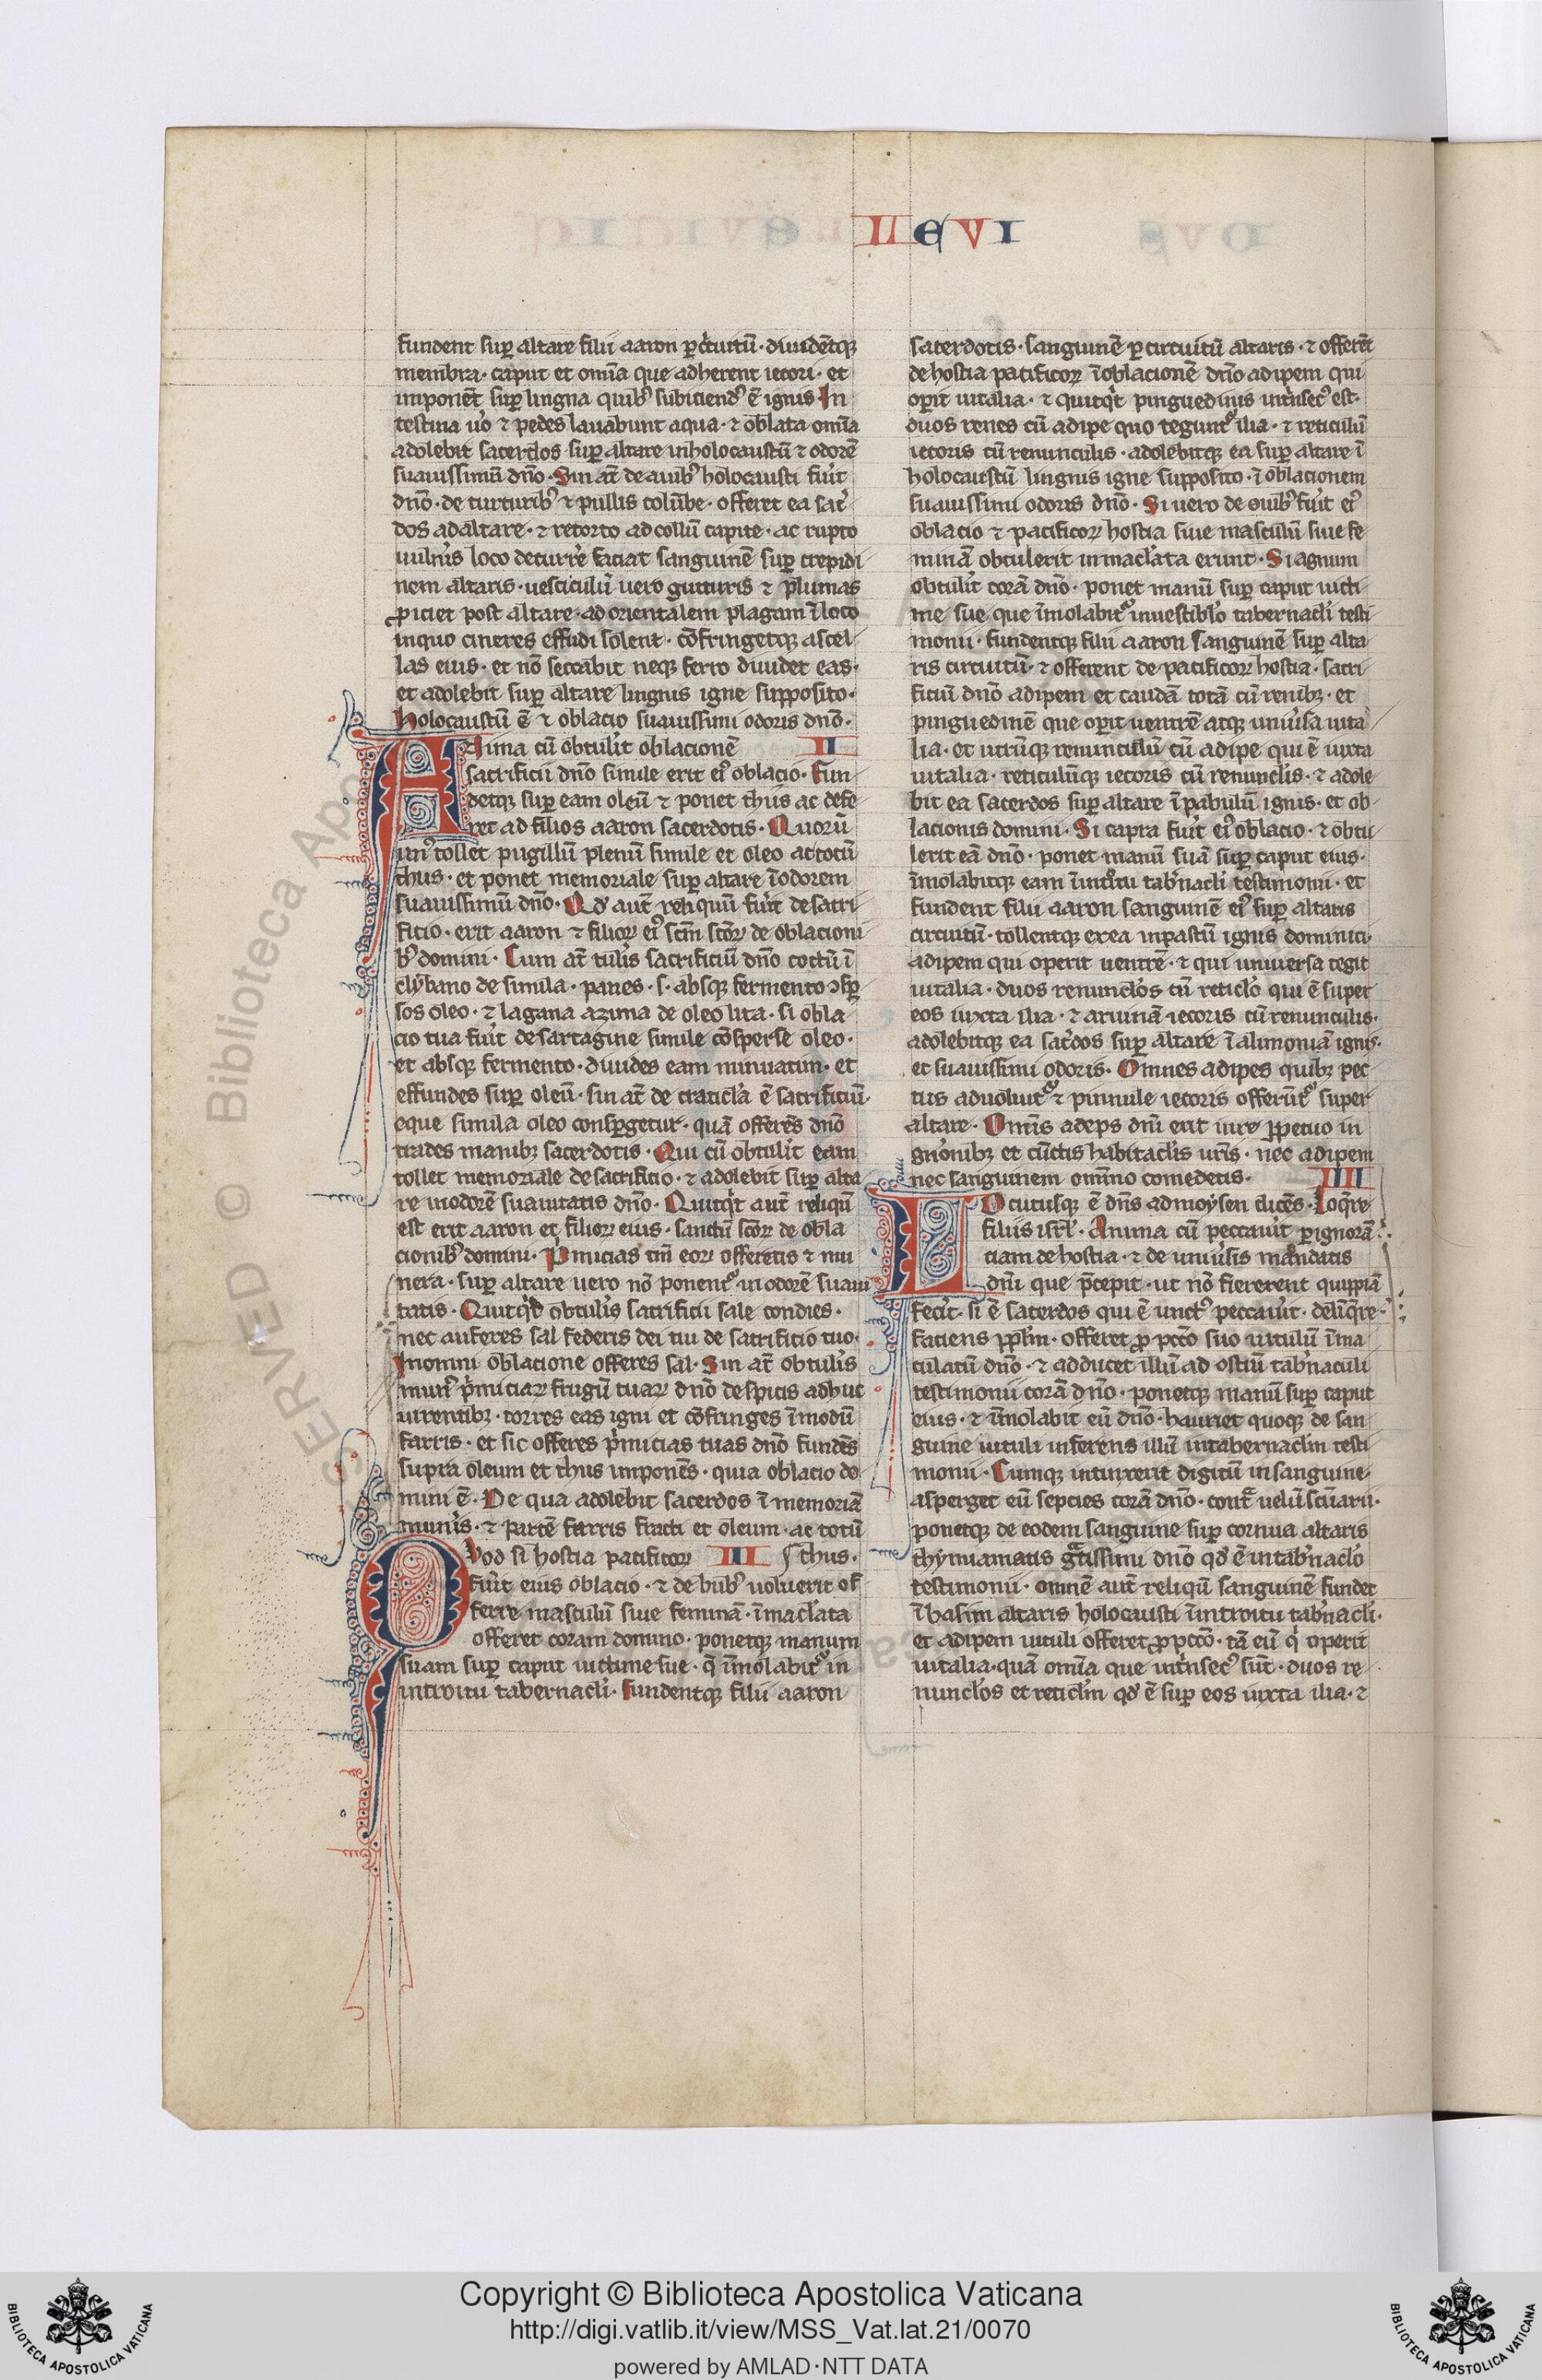 LLEVI
fundent suꝑ altare filii aaron ꝑ cͥcuitū · diuidēt qꝫ
membra · caput et om̄ia que adherent iecori · et
imponēt suꝑ lingna quibꝰ subiciendꝰ ē ignis · In
testina uͦo ⁊ pedes lauabunt aqua · ⁊ oblata om̄ia
adolebit sacerdos suꝑ altare in holocaustū ⁊ odorē
suauissimū dn̄o · Sin at̄ de auibꝰ holocausti fuͥit
dn̄o · de turturibꝰ ⁊ pullis colūbe · offeret ea sac̓
dos ad altare · ⁊ retorto ad collū capite · ac rupto
uulnīs loco decurrͤe faciat sanguinē suꝑ crepidi
nem altaris · uesciculū uero gutturis ⁊ plumas
ꝓiciet post altare · ad orientalem plagam ī loco
in quo cineres effūdi solent · cōfringetqꝫ ascel
las eius · et nō seccabit neqꝫ ferro diuidet eas ·
et adolebit suꝑ altare lingnis igne supposito ·
holocaustū ē ⁊ oblacio suauissimi odoris dn̄o ·
Anima cū obtulīt oblacionē II
sacrificii dn̄o simile erit eiꝰ oblacio · Fun
detqꝫ suꝑ eam oleū ⁊ ponet thus ac defe
ret ad filios aaron sacerdotis · Quorū
unꝰ tollet pugillū plenū simile et oleo ac totū
thus · et ponet memoriale suꝑ altare ī odorem
suauissimū dn̄o · Qd̓ aut̄ reliquū fuīt de sacri
ficio · erit aaron ⁊ filioꝝ eiꝰ scm̄ scōꝝ de oblacioni
bꝰ domini · Cum at̄ tulīs sacrificiū dn̄o coctū ī
clybano de simila · panes · s · absqꝫ fermento ↄsꝑ
sos oleo · ⁊ lagana azima de oleo lita · si obla
cio tua fuīt de sartagine simile cōsperse oleo ·
et absqꝫ fermento · diuides eam minuatim · et
effundes suꝑ oleū · sin at̄ de craticl̓a ē sacrificiū ·
eque simila oleo consꝑgetur · quā offerēs dn̄o
trades manibꝫ sacerdotis · Qui cū obtulīt eam
tollet memoriale de sacrificio · ⁊ adolebit suꝑ alta
re in odorē suauitatis dn̄o · Quicqͥt aut̄ reliqū
est erit aaron et filioꝝ eius · sanctū scōꝝ de obla
cionibꝰ domini · Pͥmicias tm̄ eoꝝ offeretis ⁊ mu
nera · suꝑ altare uero nō ponentᷣ in odorē suaui
tatis · Quicqͥd obtulīs sacrificii sale condies ·
nec auferes sal federis dei tui de sacrificio tuo ·
In omni oblacione offeres sal · Sin at̄ obtulīs
munꝰ pͥmiciaꝝ frugū tuaꝝ dn̄o de spicis adhuc
uirentibꝫ · torres eas igni et cōfringes ī modū
farris · et sic offeres pͥmicias tuas dn̄o fundēs
supra oleum et thus imponēs · quia oblacio do
mini ē · De qua adolebit sacerdos ī memoriā
munīs · ⁊ partē farris fracti et oleum · ac totū
Quod si hostia pacificoꝝ III thus ·
fuīt eius oblacio · ⁊ de bubꝰ uoluerit of
ferre masculū siue feminā · īmacl̓ata
offeret coram domino · ponetqꝫ manum
suam suꝑ caput uictime sue · q̄ īmolabitᷣ in
introitu tabernacl̓i · fundentqꝫ filii aaron
sacerdotis · sanguinē ꝑ circuitū altaris · ⁊ offerēt
de hostia pacificoꝝ ī oblacionē dn̄o adipem qui
oꝑit uitalia · ⁊ quicqͥt pinguedinis intͥnsecꝰ est ·
duos renes cū adipe quo teguntᷣ ilia · ⁊ reticulū
iecoris cū renunculis · adolebitqꝫ ea suꝑ altare ī
holocaustū lingnis igne supposito · ī oblacionem
suauissimi odoris dn̄o · Si uero de ouibꝰ fuīt eiꝰ
oblacio ⁊ pacificoꝝ hostia siue masculū siue fe
minā obtulerit inmacl̓ata erunt · Si agnum
obtulīt corā dn̄o · ponet manū suꝑ caput uicti
me sue que īmolabitᷣ in uestibl̓o tabernacl̓i testi
monii · fundentqꝫ filii aaron sanguinē suꝑ alta
ris circuitū · ⁊ offerent de pacificoꝝ hostia · sacri
ficiū dn̄o adipem et caudā totā cū renibꝫ · et
pinguedinē que oꝑit uentrē atqꝫ uniūsa uita
lia · et utrūqꝫ renunculū cū adipe qui ē iuxta
uitalia · reticulūqꝫ iecoris cū renuncl̓is · ⁊ adole
bit ea sacerdos suꝑ altare ī pabulū ignis · et ob
lacionis domini · Si capra fuīt eiꝰ oblacio · ⁊ obtu
lerit eā dn̄o · ponet manū suā suꝑ caput eius ·
īmolabitqꝫ eam ī intͦitu tab̓nacl̓i testimonii · et
fundent filii aaron sanguinē eiꝰ suꝑ altaris
circuitū · tollentqꝫ ex ea in pastū ignis dominici ·
adipem qui operit uentrē · ⁊ qui uniuersa tegit
uitalia · duos renuncl̓os cū reticl̓o qui ē super
eos iuxta ilia · ⁊ aruinā iecoris cū renunculis ·
adolebitqꝫ ea sac̓dos suꝑ altare ī alimoniā ignis ·
et suauissimi odoris · Omnes adipes quibꝫ pec
tus aduoluitᷣ ⁊ pinnule iecoris offerūtᷣ super
altare · Omīs adeps dn̄i erit iure ꝑpetuo in
gn̄onibꝫ et cūctis habitacl̓is ur̄is · nec adipem
nec sanguinem omīno comedetis · IIII
Locutusqꝫ ē dn̄s ad moysen dicēs · Loqͤre
filiis isrl̓ · Anima cū peccauīt ꝑ ignorā
ciam de hostia · ⁊ de uniūsis mandatis
dn̄i que p̄cepit · ut nō fiererent quippiā
fecīt · si ē sacerdos qui ē unctꝰ peccauīt · delīqͤre
faciens ppl̓m · offeret ꝓ pcc̄o suo uitulū īma
culatū dn̄o · ⁊ adducet illū ad ostiū tab̓naculi
testimonii corā dn̄o · ponetqꝫ manū suꝑ caput
eius · ⁊ īmolabit eū dn̄o · hauriet quoqꝫ de san
guine uituli inferens illū in tabernacl̓m testi
monii · Cumqꝫ intinxerit digitū in sanguine
asperget eū sepcies corā dn̄o · contᷓ uelū scūarii ·
ponetqꝫ de eodem sanguine suꝑ cornua altaris
thymiamatis gᷓtissimi dn̄o qd̓ ē in tab̓nacl̓o
testimonii · omnē aut̄ reliqū sanguinē fundet
ī basim altaris holocausti ī introitu tab̓nacl̓i ·
et adipem uituli offeret ꝓ pcc̄o · tā eū qͥ operit
uitalia · quā om̄ia que intͥnsecꝰ sūt · duos re
nuncl̓os et reticl̓m qd̓ ē suꝑ eos iuxta ilia · ⁊
SERVED © Biblioteca Apo
Copyright © Biblioteca Apostolica Vaticana
http://digi.vatlib.it/view/MSS_Vat.lat.21/0070
powered by AMLAD·NTT DATA
BIBLIOTECA APOSTOLICA VATICANA
BIBLIOTECA APOSTOLICA VATICANA